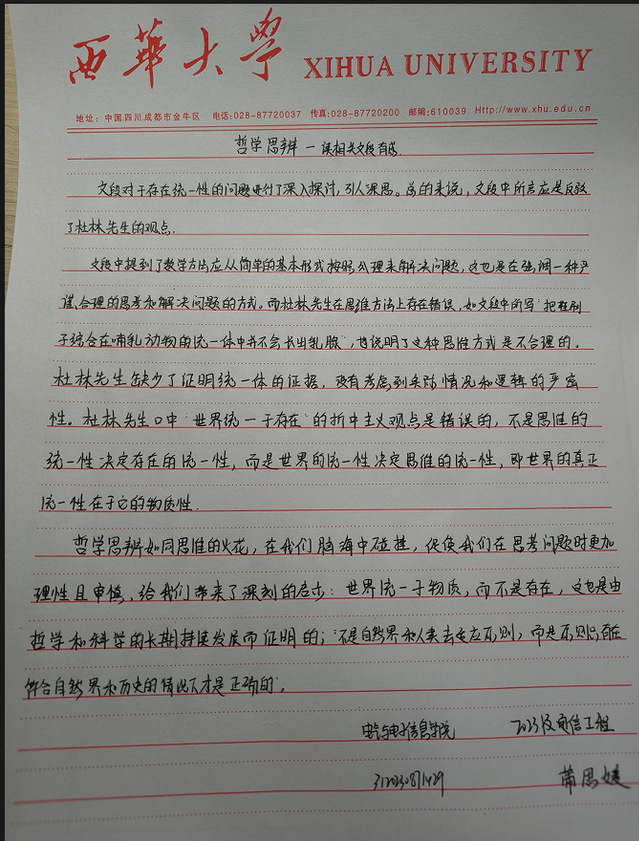 西華大學 XIHUA UNIVERSITY
地址：中国.四川.成都市金牛区 电话:028-87720037 传真:028-87720200 邮编:610039 Http://www.xhu.edu.cn
哲学思辨 — 读相关文段有感
文段对于存在统一性的问题进行了深入探讨，引人深思。总的来说，文段中所言应是反驳
了杜林先生的观点.
文段中提到了数学方法应从简单的基本形式按照公理来解决问题，这也是在强调一种严
谨、合理的思考和解决问题的方式。而杜林先生在思维方法上存在错误，如文段中所写"把鞋刷
子综合在哺乳动物的统一体中并不会长出乳腺"，也说明了这种思维方式是不合理的。
杜林先生缺少了证明统一体的证据，没有考虑到实际情况和逻辑的严密
性。杜林先生口中"世界统一于存在"的折中主义观点是错误的，不是思维的
统一性决定存在的统一性，而是世界的统一性决定思维的统一性，即世界的真正
统一性在于它的物质性.
哲学思辨如同思维的火花，在我们脑海中碰撞，促使我们在思考问题时更加
理性且审慎，给我们带来了深刻的启示：世界统一于物质，而不是存在，这也是由
哲学和科学的长期持续发展而证明的；"不是自然界和人类去适应原则，而是原则只有在
符合自然界和历史的情况下才是正确的"。
电气与电子信息学院 2023级通信工程
蒲思媛